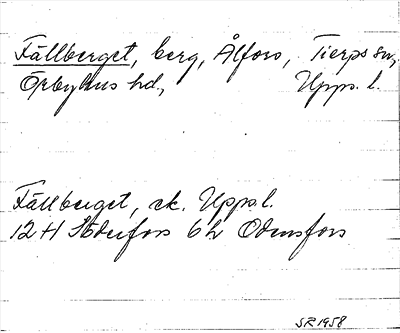 Fällberget, berg, Ålfors, Tierps sn,
Örbyhus hd., Upps. l.
Fällberget, ek. Upps. l.
12 H Söderfors 6 h Odensfors
SR 1958